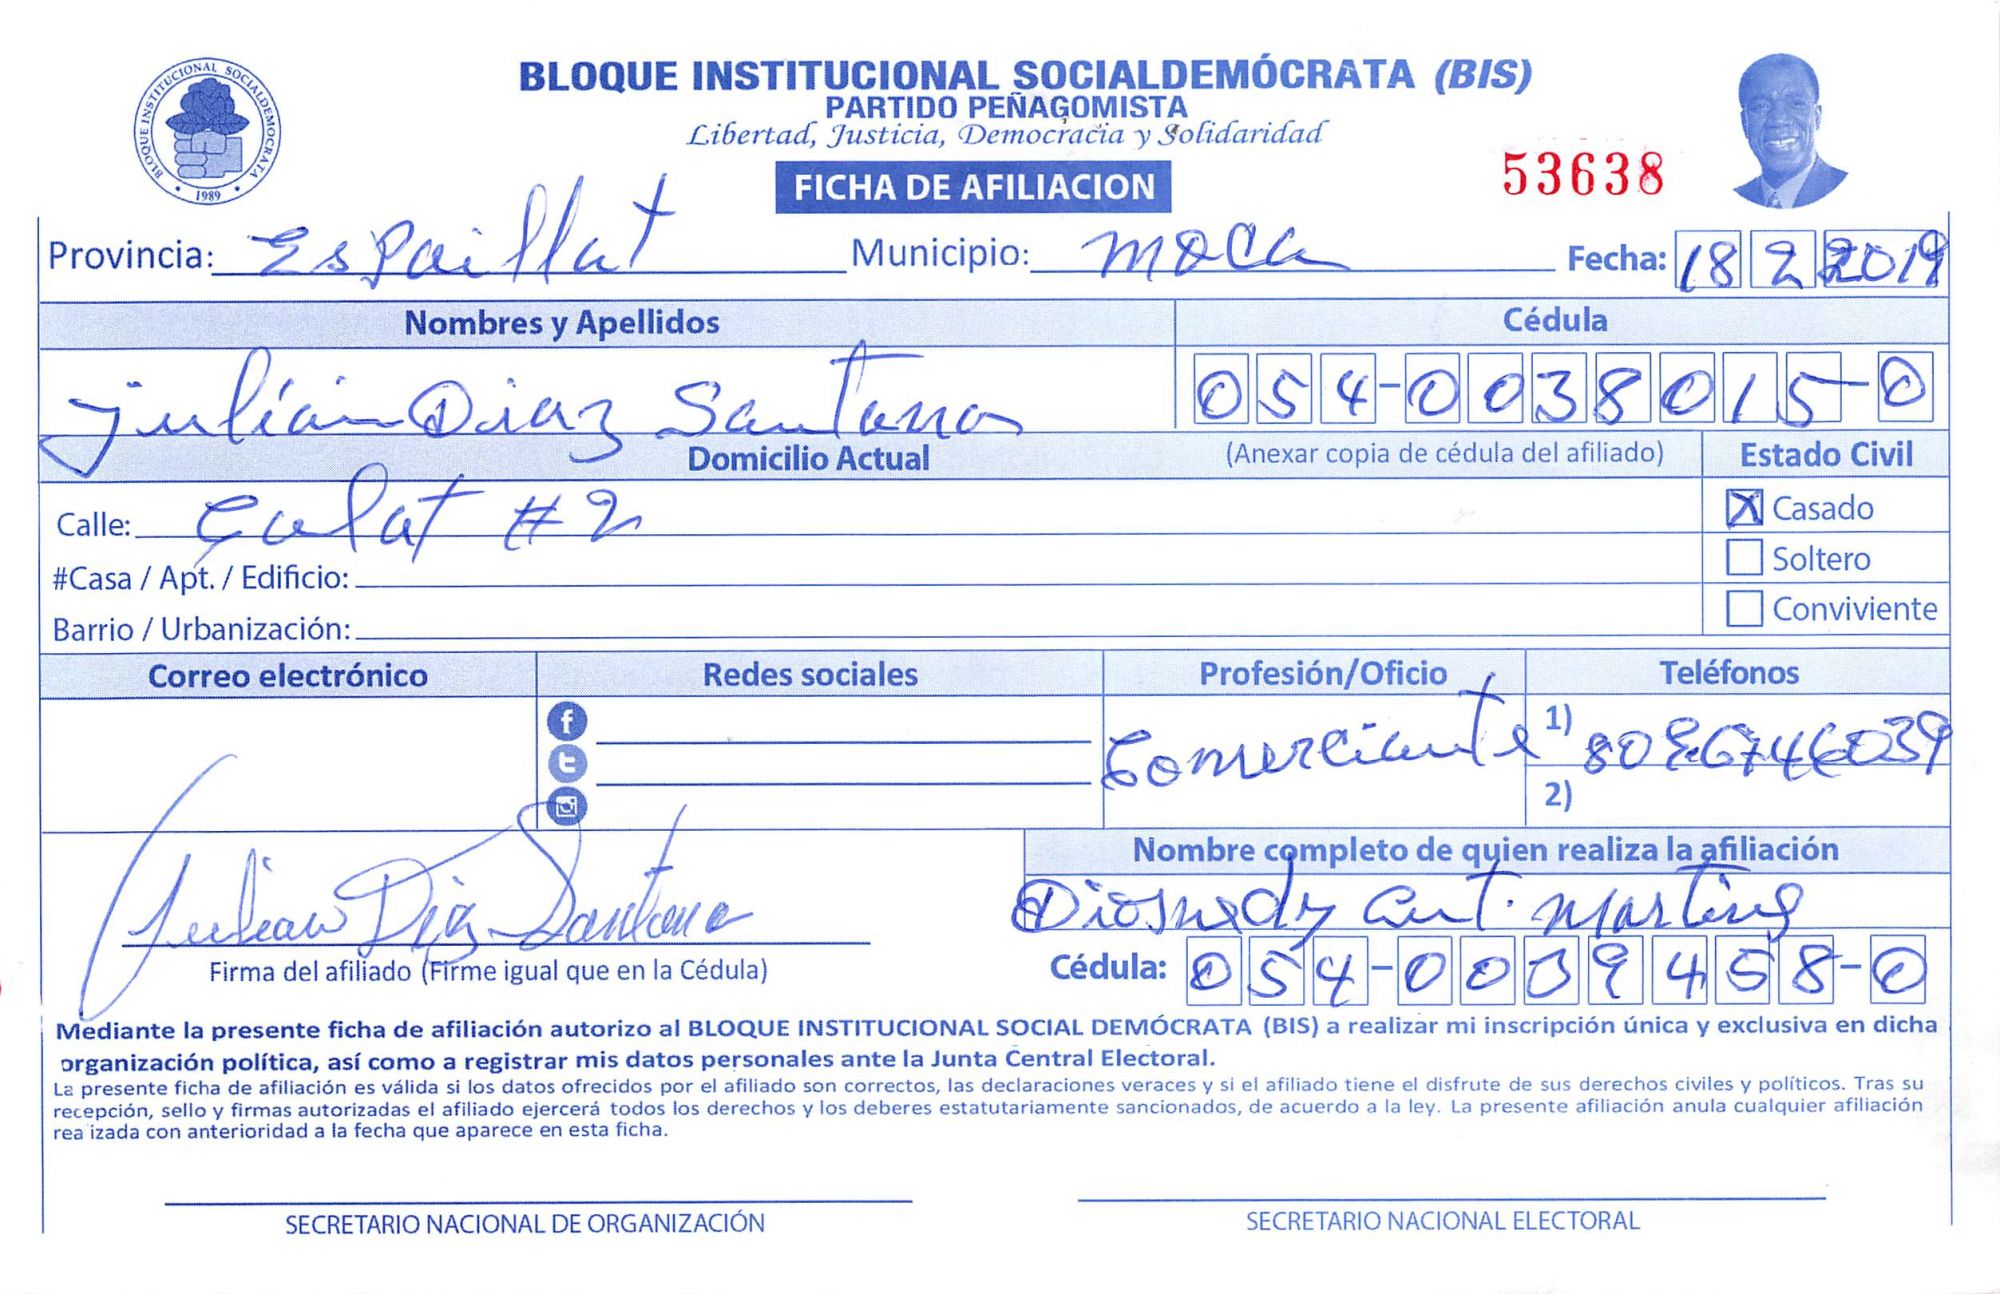 BLOQUE INSTITUCIONAL SOCIALDEMÓCRATA (BIS)
PARTIDO PEÑAGOMISTA
Libertad, Justicia, Democracia y Solidaridad
BLOQUE INSTITUCIONAL SOCIALDEMOCRATA
1989
FICHA DE AFILIACION
53638
Provincia: Espaillat Municipio: Moca Fecha: 18 2 2019
Nombres y Apellidos Cédula
Julián Diaz Santana 054-0038015-0
Domicilio Actual (Anexar copia de cédula del afiliado) Estado Civil
Calle: #2 X Casado
#Casa / Apt. / Edificio: Soltero
Barrio / Urbanización: Conviviente
Correo electrónico Redes sociales Profesión/Oficio Teléfonos
Comerciante 1)
2)
Nombre completo de quien realiza la afiliación
Julian Diaz Santana Diosmedy Ant. Martinez
Firma del afiliado (Firme igual que en la Cédula) Cédula: 054-0039458-0
Mediante la presente ficha de afiliación autorizo al BLOQUE INSTITUCIONAL SOCIAL DEMÓCRATA (BIS) a realizar mi inscripción única y exclusiva en dicha
organización política, así como a registrar mis datos personales ante la Junta Central Electoral.
La presente ficha de afiliación es válida si los datos ofrecidos por el afiliado son correctos, las declaraciones veraces y si el afiliado tiene el disfrute de sus derechos civiles y políticos. Tras su
recepción, sello y firmas autorizadas el afiliado ejercerá todos los derechos y los deberes estatutariamente sancionados, de acuerdo a la ley. La presente afiliación anula cualquier afiliación
rea izada con anterioridad a la fecha que aparece en esta ficha.
SECRETARIO NACIONAL DE ORGANIZACIÓN SECRETARIO NACIONAL ELECTORAL